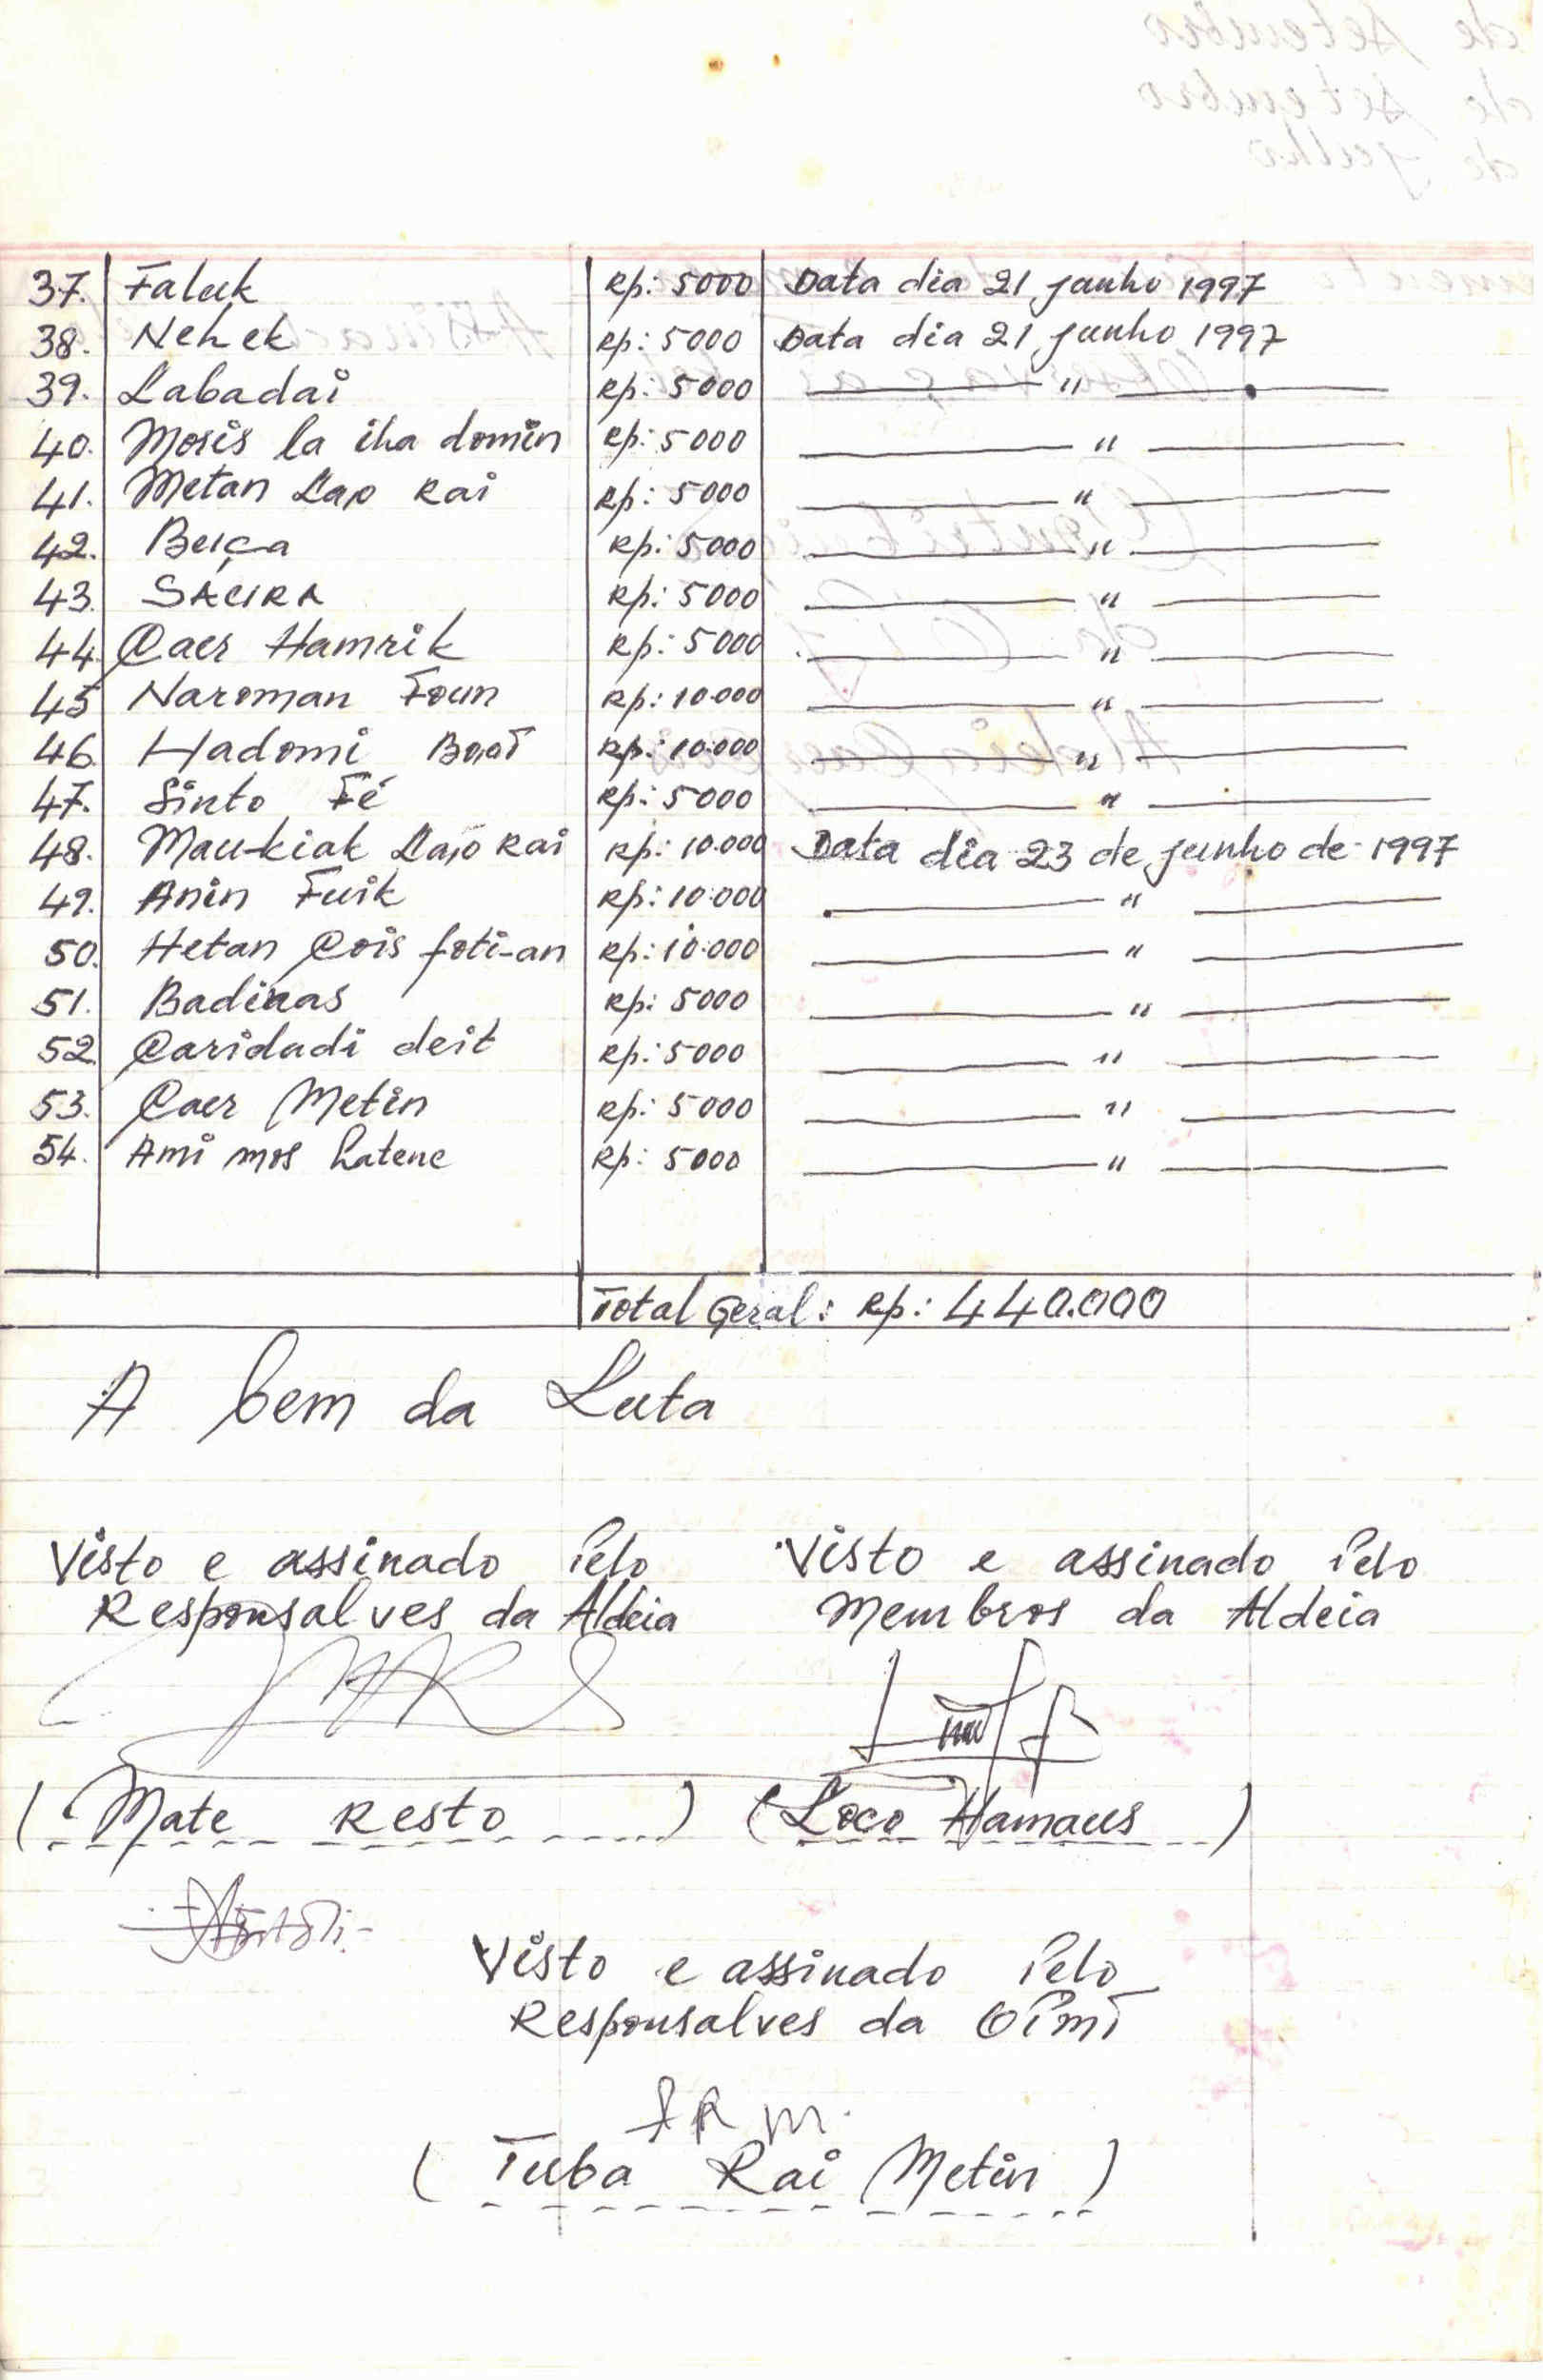 37. Faluk Rp: 5000 Data dia 21 junho 1997
38. Nehek Rp: 5000 Data dia 21 junho 1997
39. Labadai Rp: 5000 "
40. Moris la iha domin Rp: 5000 "
41. Metan Lao Rai Rp: 5000 "
42. Beiça Rp: 5000 "
43. SAURA Rp: 5000 "
44. Caer Hamrik Rp: 5000 "
45 Naroman Foun Rp: 10.000 "
46. Hadomi Boot Rp: 10.000 "
47. Sinto Fé Rp: 5000 "
48. Mau-kiak Lao Rai Rp: 10.000 Data dia 23 de junho de 1997
49. Anin Fuik Rp: 10.000 "
50. Hetan Cois foti-an Rp: 10.000 "
51. Badinas Rp: 5000 "
52. Caridadi deit Rp: 5000 "
53. Caer Metin Rp: 5000 "
54. Ami mos hatene Rp: 5000 "
Total Geral: Rp: 440.000
A bem da Luta
Visto e assinado Pelo
Responsalves da Aldeia
Visto e assinado Pelo
Membros da Aldeia
(Mate Resto)
(Loco Hamaus)
Visto e assinado Pelo
Responsalves da OPMT
T R M.
(Tuba Rai Metin)